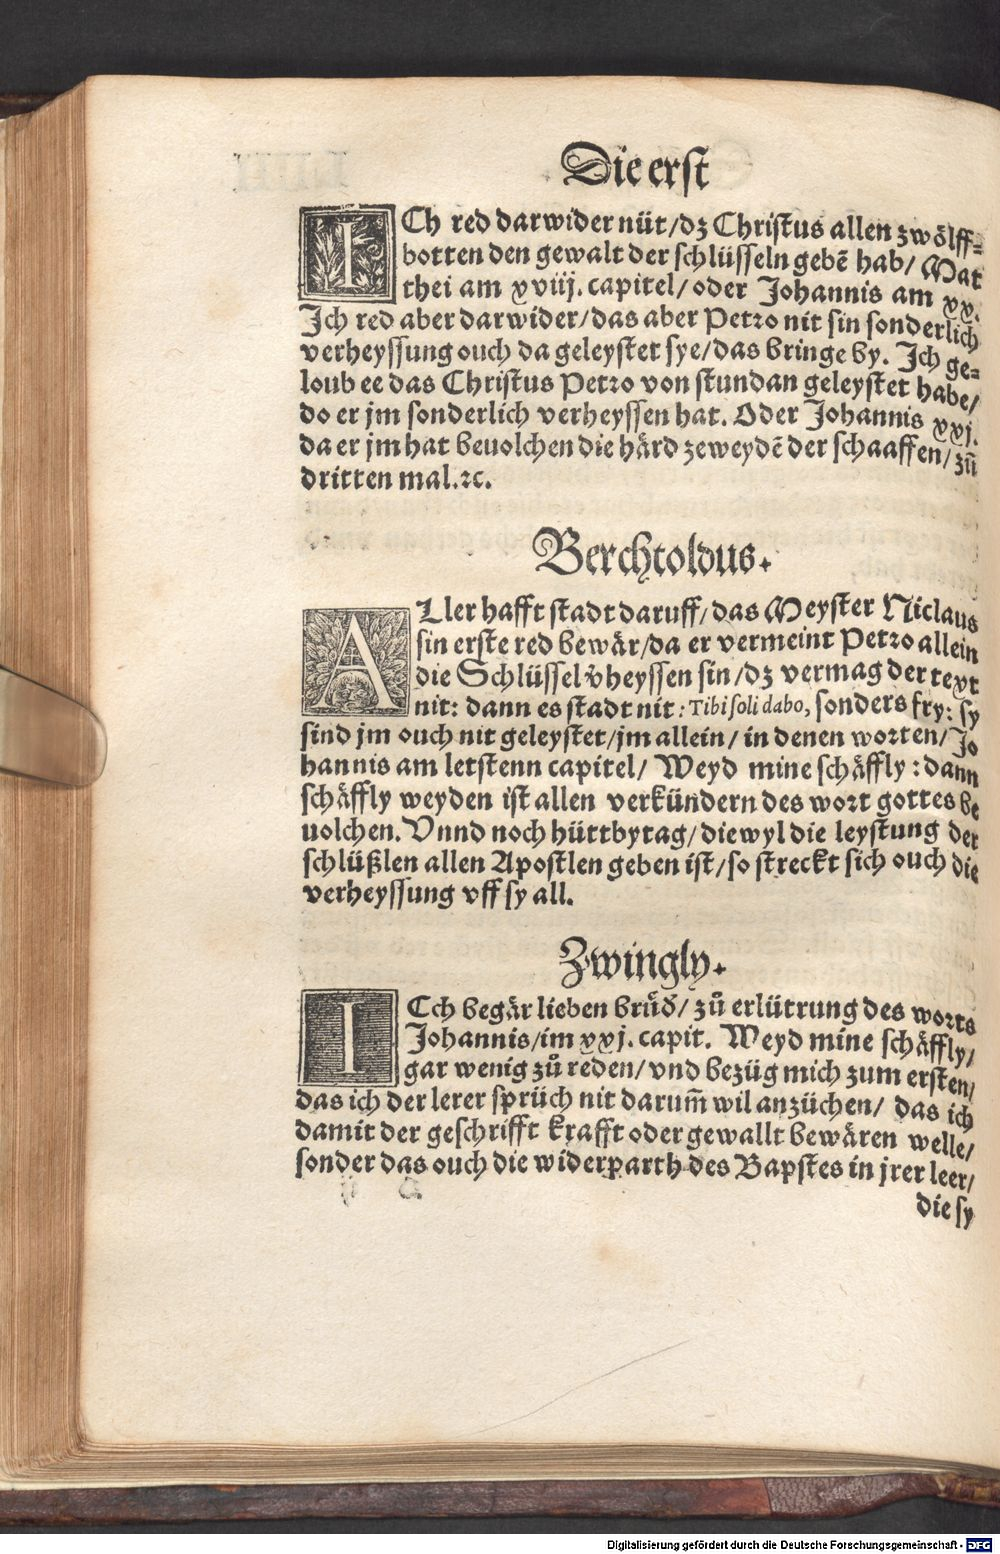 Die erst
ICh red darwider nüt/dz Christus allen zwölff⸗
botten den gewalt der schlüsseln gebē hab/ Mat
thei am xviij. capitel/ oder Johannis am xx.
Ich red aber darwider/das aber Petro nit sin sonderlich
verheyssung ouch da geleystet sye/das bringe by. Ich ge⸗
loub ee das Christus Petro von stundan geleystet habe/
do er jm sonderlich verheyssen hat. Oder Johannis xxj.
da er jm hat beuolchen die härd zeweydē der schaaffen/ zū
dritten mal.ꝛc.
Berchtoldus.
ALler hafft stadt daruff/das Meyster Niclaus
sin erste red bewär/da er vermeint Petro allein
die Schlüssel v̄heyssen sin/dz vermag der text
nit: dann es stadt nit: Tibi soli dabo, sonders fry: sy
sind jm ouch nit geleystet/jm allein/ in denen worten/ Jo
hannis am letstenn capitel/ Weyd mine schäffly: dann
schäffly weyden ist allen verkündern des wort gottes be
uolchen. Vnnd noch hüttbytag/diewyl die leystung der
schlüßlen allen Apostlen geben ist/so streckt sich ouch die
verheyssung vff sy all.
Zwingly.
ICch begär lieben brüď/ zů erlütrung des worts
Johannis/im xxj. capit. Weyd mine schäffly/
gar wenig zů reden/ vnd bezüg mich zum ersten/
das ich der lerer sprüch nit darum̄ wil anzüchen/ das ich
damit der geschrifft krafft oder gewallt bewären welle/
sonder das ouch die widerparth des Bapstes in jrer leer/
die sy
Digitalisierung gefördert durch die Deutsche Forschungsgemeinschaft - DFG